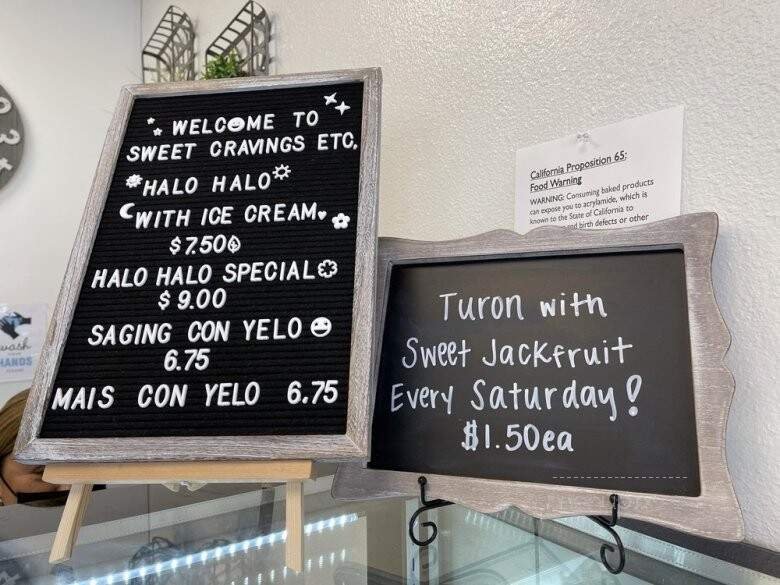 WELCOME TO
SWEET CRAVINGS ETC,
HALO HALO
WITH ICE CREAM
$7.50
HALO HALO SPECIAL
$9.00
SAGING CON YELO
6.75
MAIS CON YELO 6.75
California Proposition 65:
Food Warning
WARNING: Consuming baked products
can expose you to acrylamide, which is
known to the State of California to
and birth defects or other
Turon with
Sweet Jackfruit
Every Saturday!
$1.50ea
wash
HANDS
3